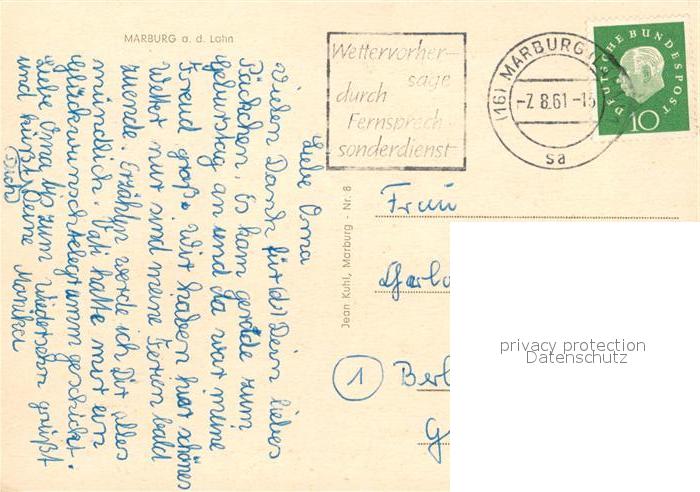 MARBURG a. d. Lahn
Wettervorher-
sage
durch
Fernsprech-
sonderdienst
(16) MARBURG
-7.8.61-15
sa
DEUTSCHE BUNDESPOST
10
Liebe Oma
Vielen Dank für (d) Dein liebes
Päckchen. Es kam gerade zum
Geburtstag an und da war meine
Freud groß. Wir haben hier schönes
Wetter nur sind meine Ferien bald
zuende. Erzählen werde ich Dir alles
mündlich. Vati hatte mir ein
Glückwunschtelegramm geschickt.
Liebe Oma bis zum Wiedersehn grüßt
und küßt Dich Deine Monika
Jean Kuhl, Marburg - Nr. 8
Frau
1 Berl
privacy protection
Datenschutz